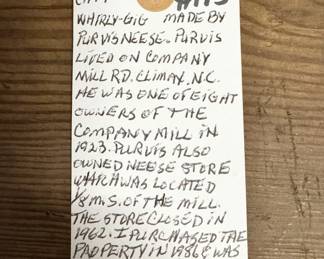 WHIRLY-GIG MADE BY
PURVIS NEESE. PURVIS
LIVED ON COMPANY
MILL RD. CLIMAX, N.C.
HE WAS ONE OF EIGHT
OWNERS OF THE
COMPANY MILL IN
1923. PURVIS ALSO
OWNED NEESE STORE
WHICH WAS LOCATED
1/8 M. S. OF THE MILL.
THE STORE CLOSED IN
1962. I PURCHASED THE
PROPERTY IN 1986 & WAS